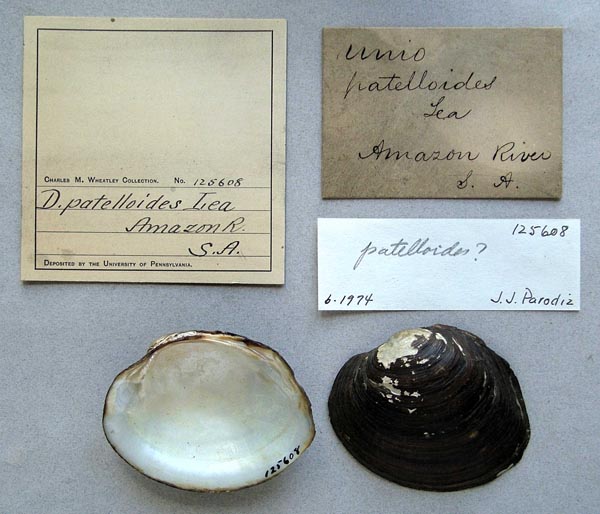 CHARLES M. WHEATLEY COLLECTION. No. 125608
D. patelloides Lea
Amazon R.
S.A.
DEPOSITED BY THE UNIVERSITY OF PENNSYLVANIA.
Unio
patelloides
Lea
Amazon River
S. A.
125608
patelloides?
6.1974 J.J. Parodiz
125608